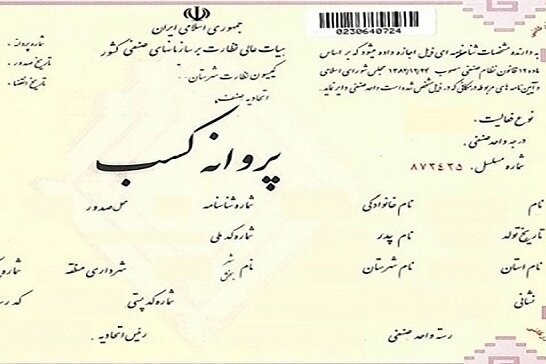 جمهوری اسلامی ایران
هیات عالی نظارت بر سازمانهای صنفی کشور
کمیسیون نظارت شهرستان:
اتحادیه صنف:
شماره پروانه:
تاریخ صدور:
تاریخ انقضاء:
0230640724
به دارنده مشخصات شناسنامه ای ذیل اجازه داده میشود که بر اساس
ماده ۱۲ قانون نظام صنفی مصوب ۱۳۸۲/۱۲/۲۴ مجلس شورای اسلامی
و آیین نامه های مربوطه در مکانی که در ذیل مشخص شده است واحد صنفی دایر نماید.
نوع فعالیت:
درجه واحد صنفی:
شماره مسلسل: ۸۷۳۴۳۵
پروانه کسب
نام نام خانوادگی شماره شناسنامه محل صدور
تاریخ تولد نام پدر شماره کد ملی
نام استان نام شهرستان نام شهر بخش شهرداری منطقه
نشانی شماره کد پستی
رسته واحد صنفی رئیس اتحادیه: